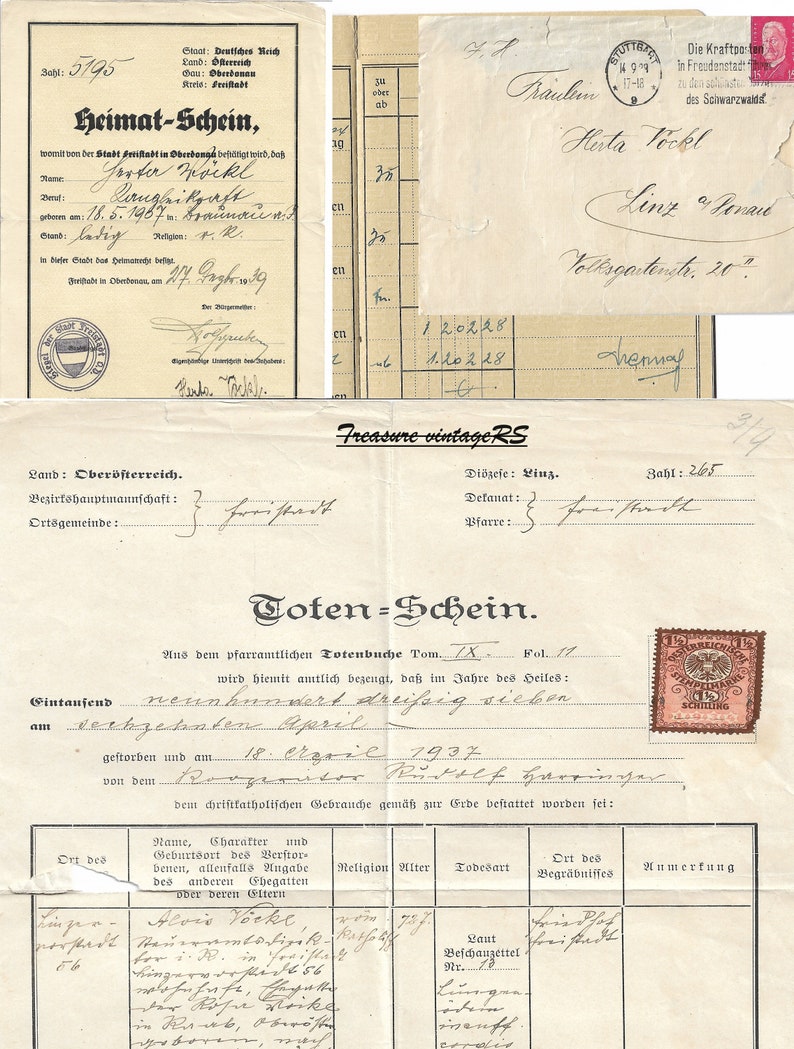 Staat: Deutsches Reich
Land: Österreich
Gau: Oberdonau
Kreis: Freistadt
Zahl: 5195
Heimat-Schein,
womit von der Stadt Freistadt in Oberdonau bestätigt wird, daß
Name: Herta Vöckl
Beruf: Kanzleikraft
geboren am: 18.5.1937 in: Braunau a. I.
Stand: ledig Religion: r. k.
in dieser Stadt das Heimatrecht besitzt.
Freistadt in Oberdonau, am 27. Dezbr. 1939
Der Bürgermeister:
Eigenhändige Unterschrift des Inhabers:
Herta Vöckl.
Siegel der Stadt Freistadt O.D.
zu
oder
ab
zu
zu
ab
1 20228
1.20228
STUTTGART
14 9 28
17-18
9
Die Kraftposten
in Freudenstadt führen
zu den schönsten
des Schwarzwalds
15 15
Fräulein
Herta Vöckl
Linz a/Donau
Volksgartenstr. 20 II
Treasure vintageRS
3/9
Land: Oberösterreich.
Bezirkshauptmannschaft:
Ortsgemeinde: Freistadt
Diözese: Linz. Zahl: 265
Dekanat:
Pfarre: Freistadt
Toten=Schein.
Aus dem pfarramtlichen Totenbuche Tom. IX. Fol. 11
wird hiemit amtlich bezeugt, daß im Jahre des Heiles:
Eintausend neunhundert dreißig sieben
am sechzehnten April
gestorben und am 18. April 1937
von dem Kooperator Rudolf
dem christkatholischen Gebrauche gemäß zur Erde bestattet worden sei:
1½ 1½
OESTERREICHISCHE
STEMPELMARKE
1½
SCHILLING
Ort des
Name, Charakter und
Geburtsort des Verstor-
benen, allenfalls Angabe
des anderen Ehegatten
oder deren Eltern
Religion
Alter
Todesart
Ort des
Begräbnisses
Anmerkung
Linzer-
vorstadt
56
Alois Vöckl
Steueramtsdirek-
tor i. R. in Freistadt
Linzervorstadt 56
wohnhaft, Ehegatte
der Rosa Vöckl
in Raab, Oberöster
geboren, nach
röm.
katholisch
72 J.
Laut
Beschauzettel
Nr. 13
Lungen-
ödem
insuff.
cordis
Friedhof
Freistadt